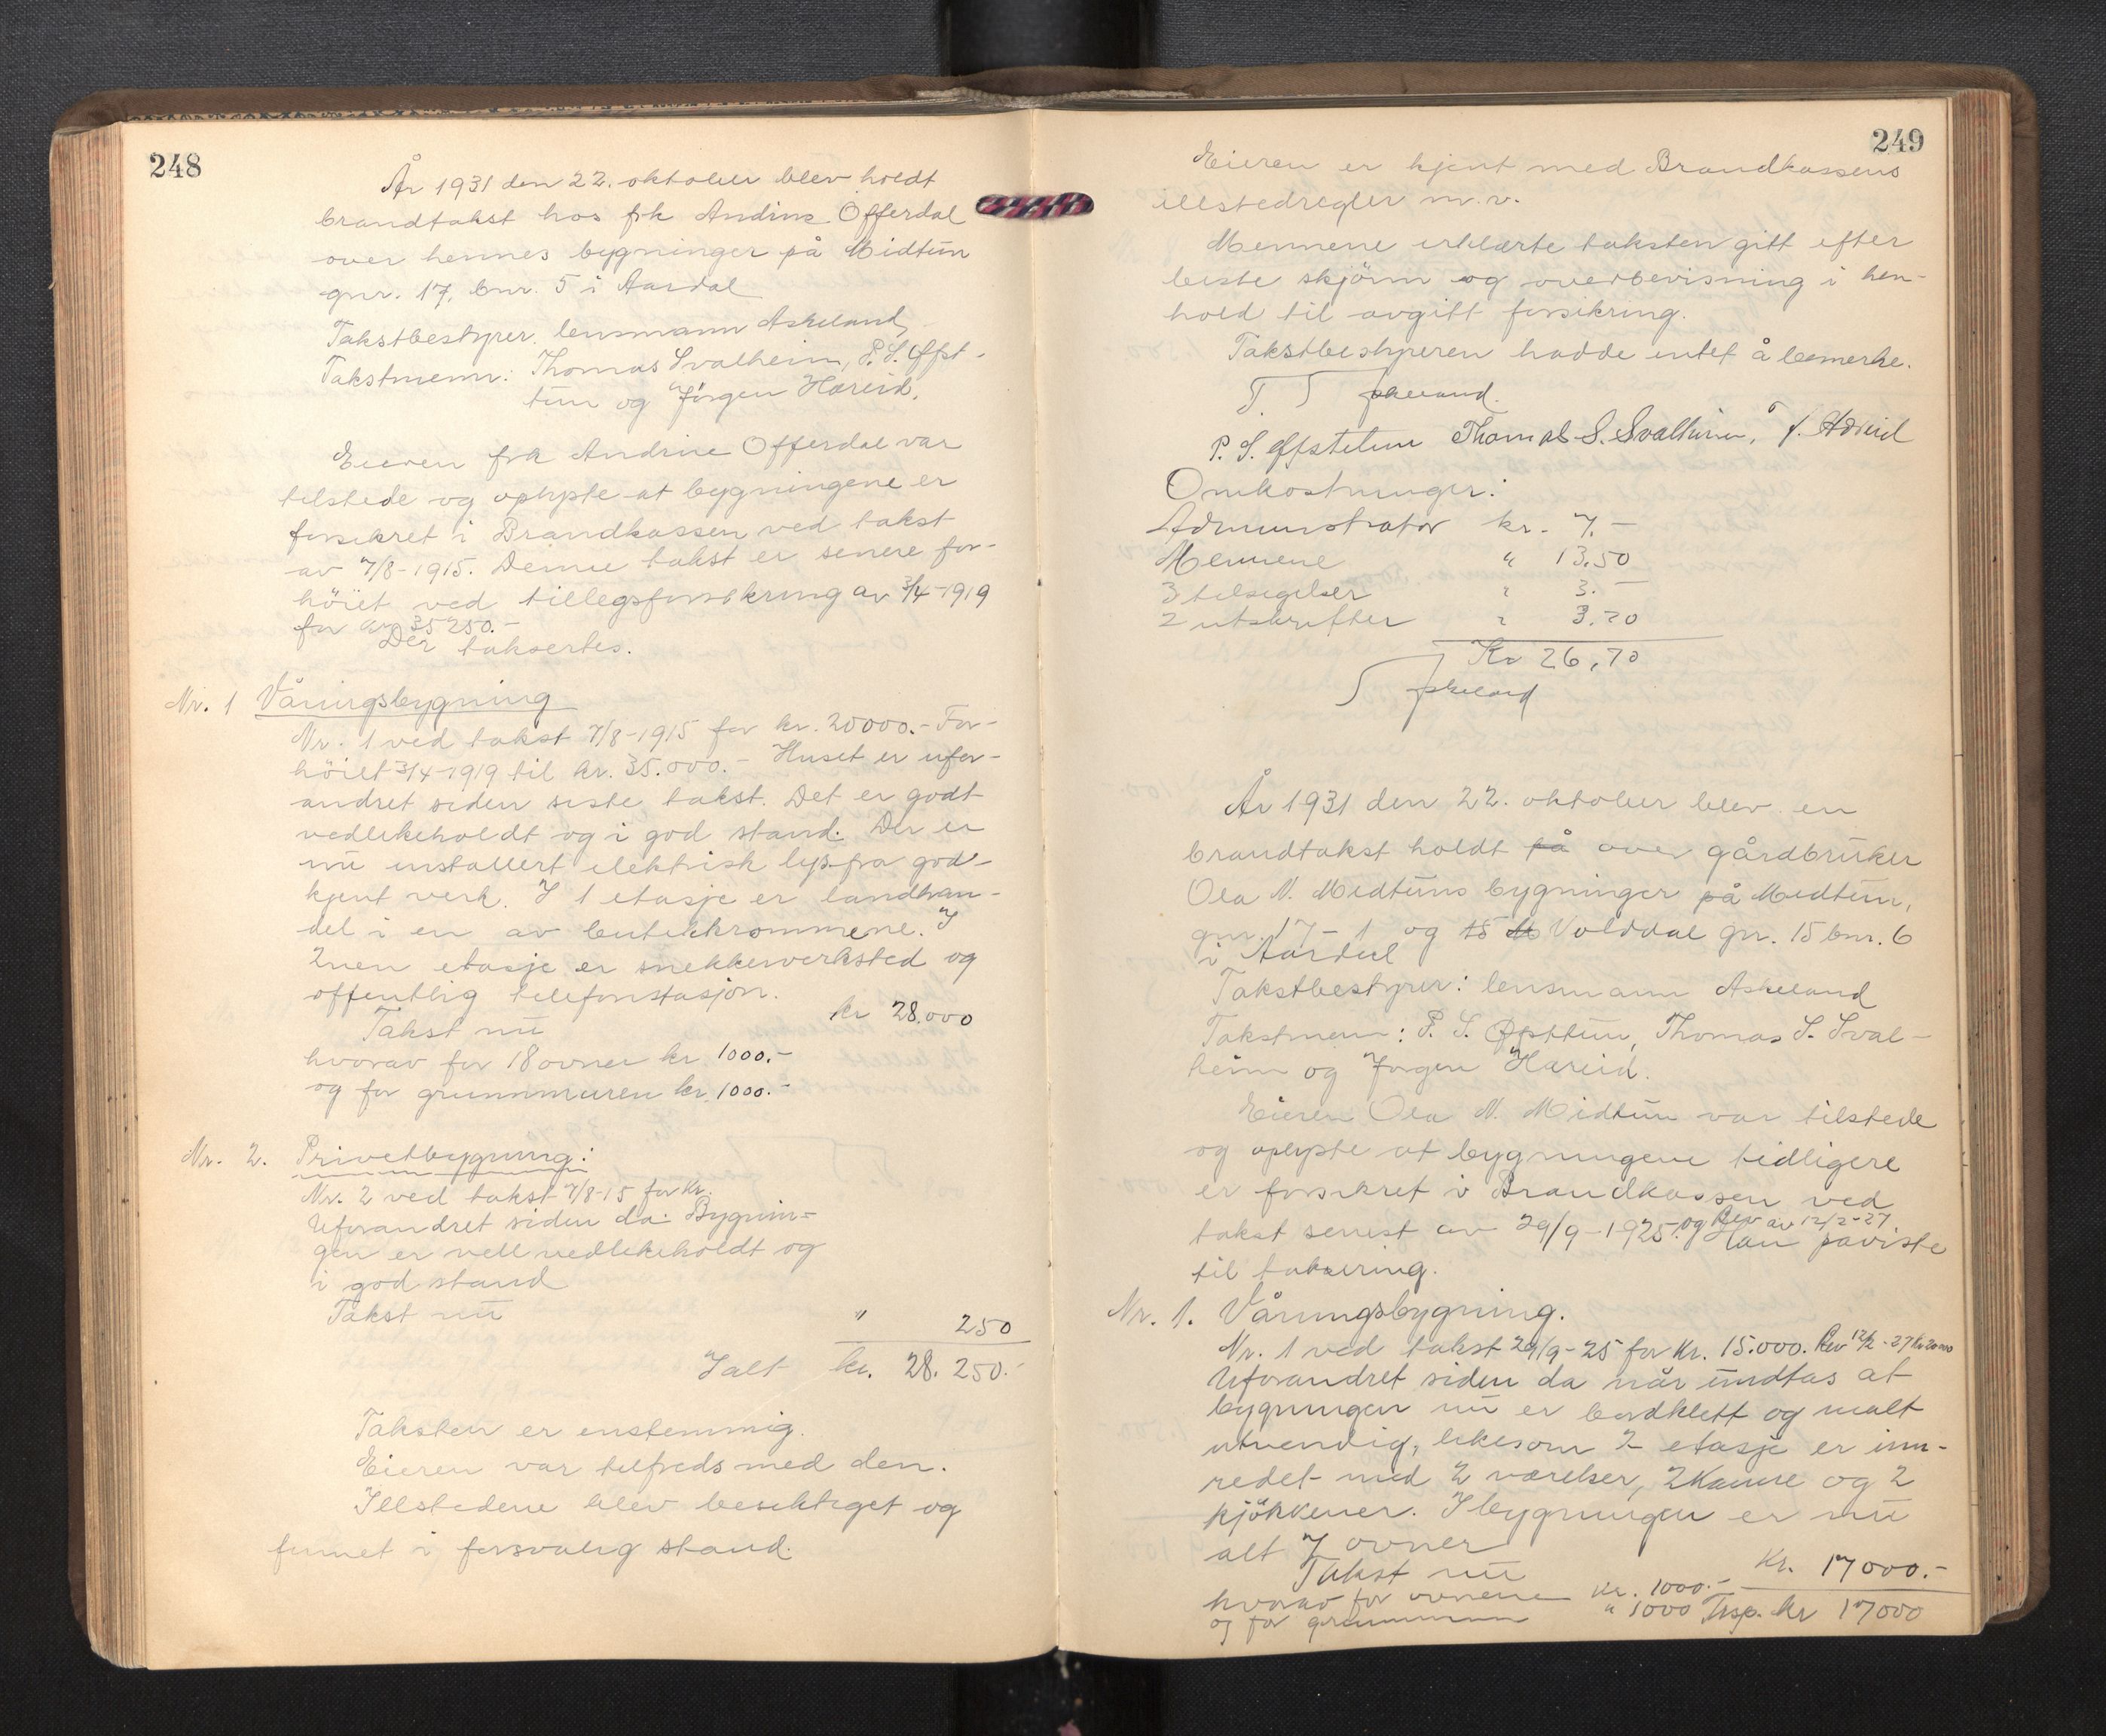 248
År 1931 den 22. oktober blev holdt
brandtakst hos frk Andrine Offerdal
over hennes bygninger på Midtun
gnr. 17, bnr. 5 i Aardal
Takstbestyrer. lensmann Askeland,
Takstmenn: Thomas Svalheim, P. S. Øfst-
tun og Jörgen Hæreid.
Eieren frk Andrine Offerdal var
tilstede og oplyste at bygningene er
forsikret i Brandkassen ved takst
av 7/8-1915. Denne takst er senere for-
höiet ved tillegsforsikring av 3/4-1919
for kr 35250.-
Der taksertes.
Nr. 1 Våningsbygning
Nr. 1 ved takst 7/8-1915 for kr. 20000.- For-
höiet 3/4-1919 til kr. 35.000.- Huset er ufor-
andret siden siste takst. Det er godt
vedlikeholdt og i god stand. Der er
nu installert elektrisk lys fra god-
kjent verk. I 1 etasje er landhan-
del i en av butikkrommene. I
2nen etasje er snekkerverksted og
offentlig telefonstasjon.
Takst nu kr 28.000
hvorav for 18 ovner kr 1000.-
og for grunnmuren kr. 1000.-
Nr. 2. Privetbygning:
Nr. 2 ved takst 7/8-15 for kr.
Uforandret siden da. Bygnin-
gen er vell vedlikeholdt og
i god stand
Takst nu " 250
Ialt kr. 28.250.-
Taksten er enstemmig.
Eieren var tilfreds med den.
Illstedene blev besiktiget og
funnet i forsvarlig stand.
249
Eieren er kjent med Brandkassens
illstedregler m.v.
Mennene erklærte taksten gitt efter
beste skjönn og overbevisning i hen-
hold til avgitt forsikring.
Takstbestyreren hadde intet å bemerke.
Askeland.
P. S. Øfstetun Thomas S. Svalheim, J. Hæreid
Omkostninger:
Administrator kr. 7.-
Mennene " 13.50
3 tilsigelser " 3.-
2 utskrifter " 3.20
Kr 26,70
Askeland
År 1931 den 22. oktober blev en
brandtakst holdt på over gårdbruker
Ola N. Midtuns bygninger på Midtun,
gnr. 17-1 og 15 Volddal gnr. 15 bnr. 6
i Aardal
Takstbestyrer: lensmann Askeland
Takstmenn: P. S. Øfsttun, Thomas S. Sval-
heim og Jörgen Hæreid.
Eieren Ola N. Midtun var tilstede
og oplyste at bygningene tidligere
er forsikret i Brandkassen ved
takst senest av 29/9-1925. og Rev av 12/2-27. Han påviste
til taksering.
Nr. 1. Våningsbygning.
Nr. 1 ved takst 29/9-25 for kr. 15.000. Rev 12/2-27 kr 20000
Uforandret siden da når undtas at
bygningen nu er bordklett og malt
utvendig, likesom 2 etasje er inn-
redet med 2 værelser, 2 kamre og 2
kjökkener. I bygningen er nu
alt 7 ovner
Takst nu Kr. 17000.-
hvorav for ovnene kr. 1000.-
og for grunnmuren " 1000 Trsp. kr 17000